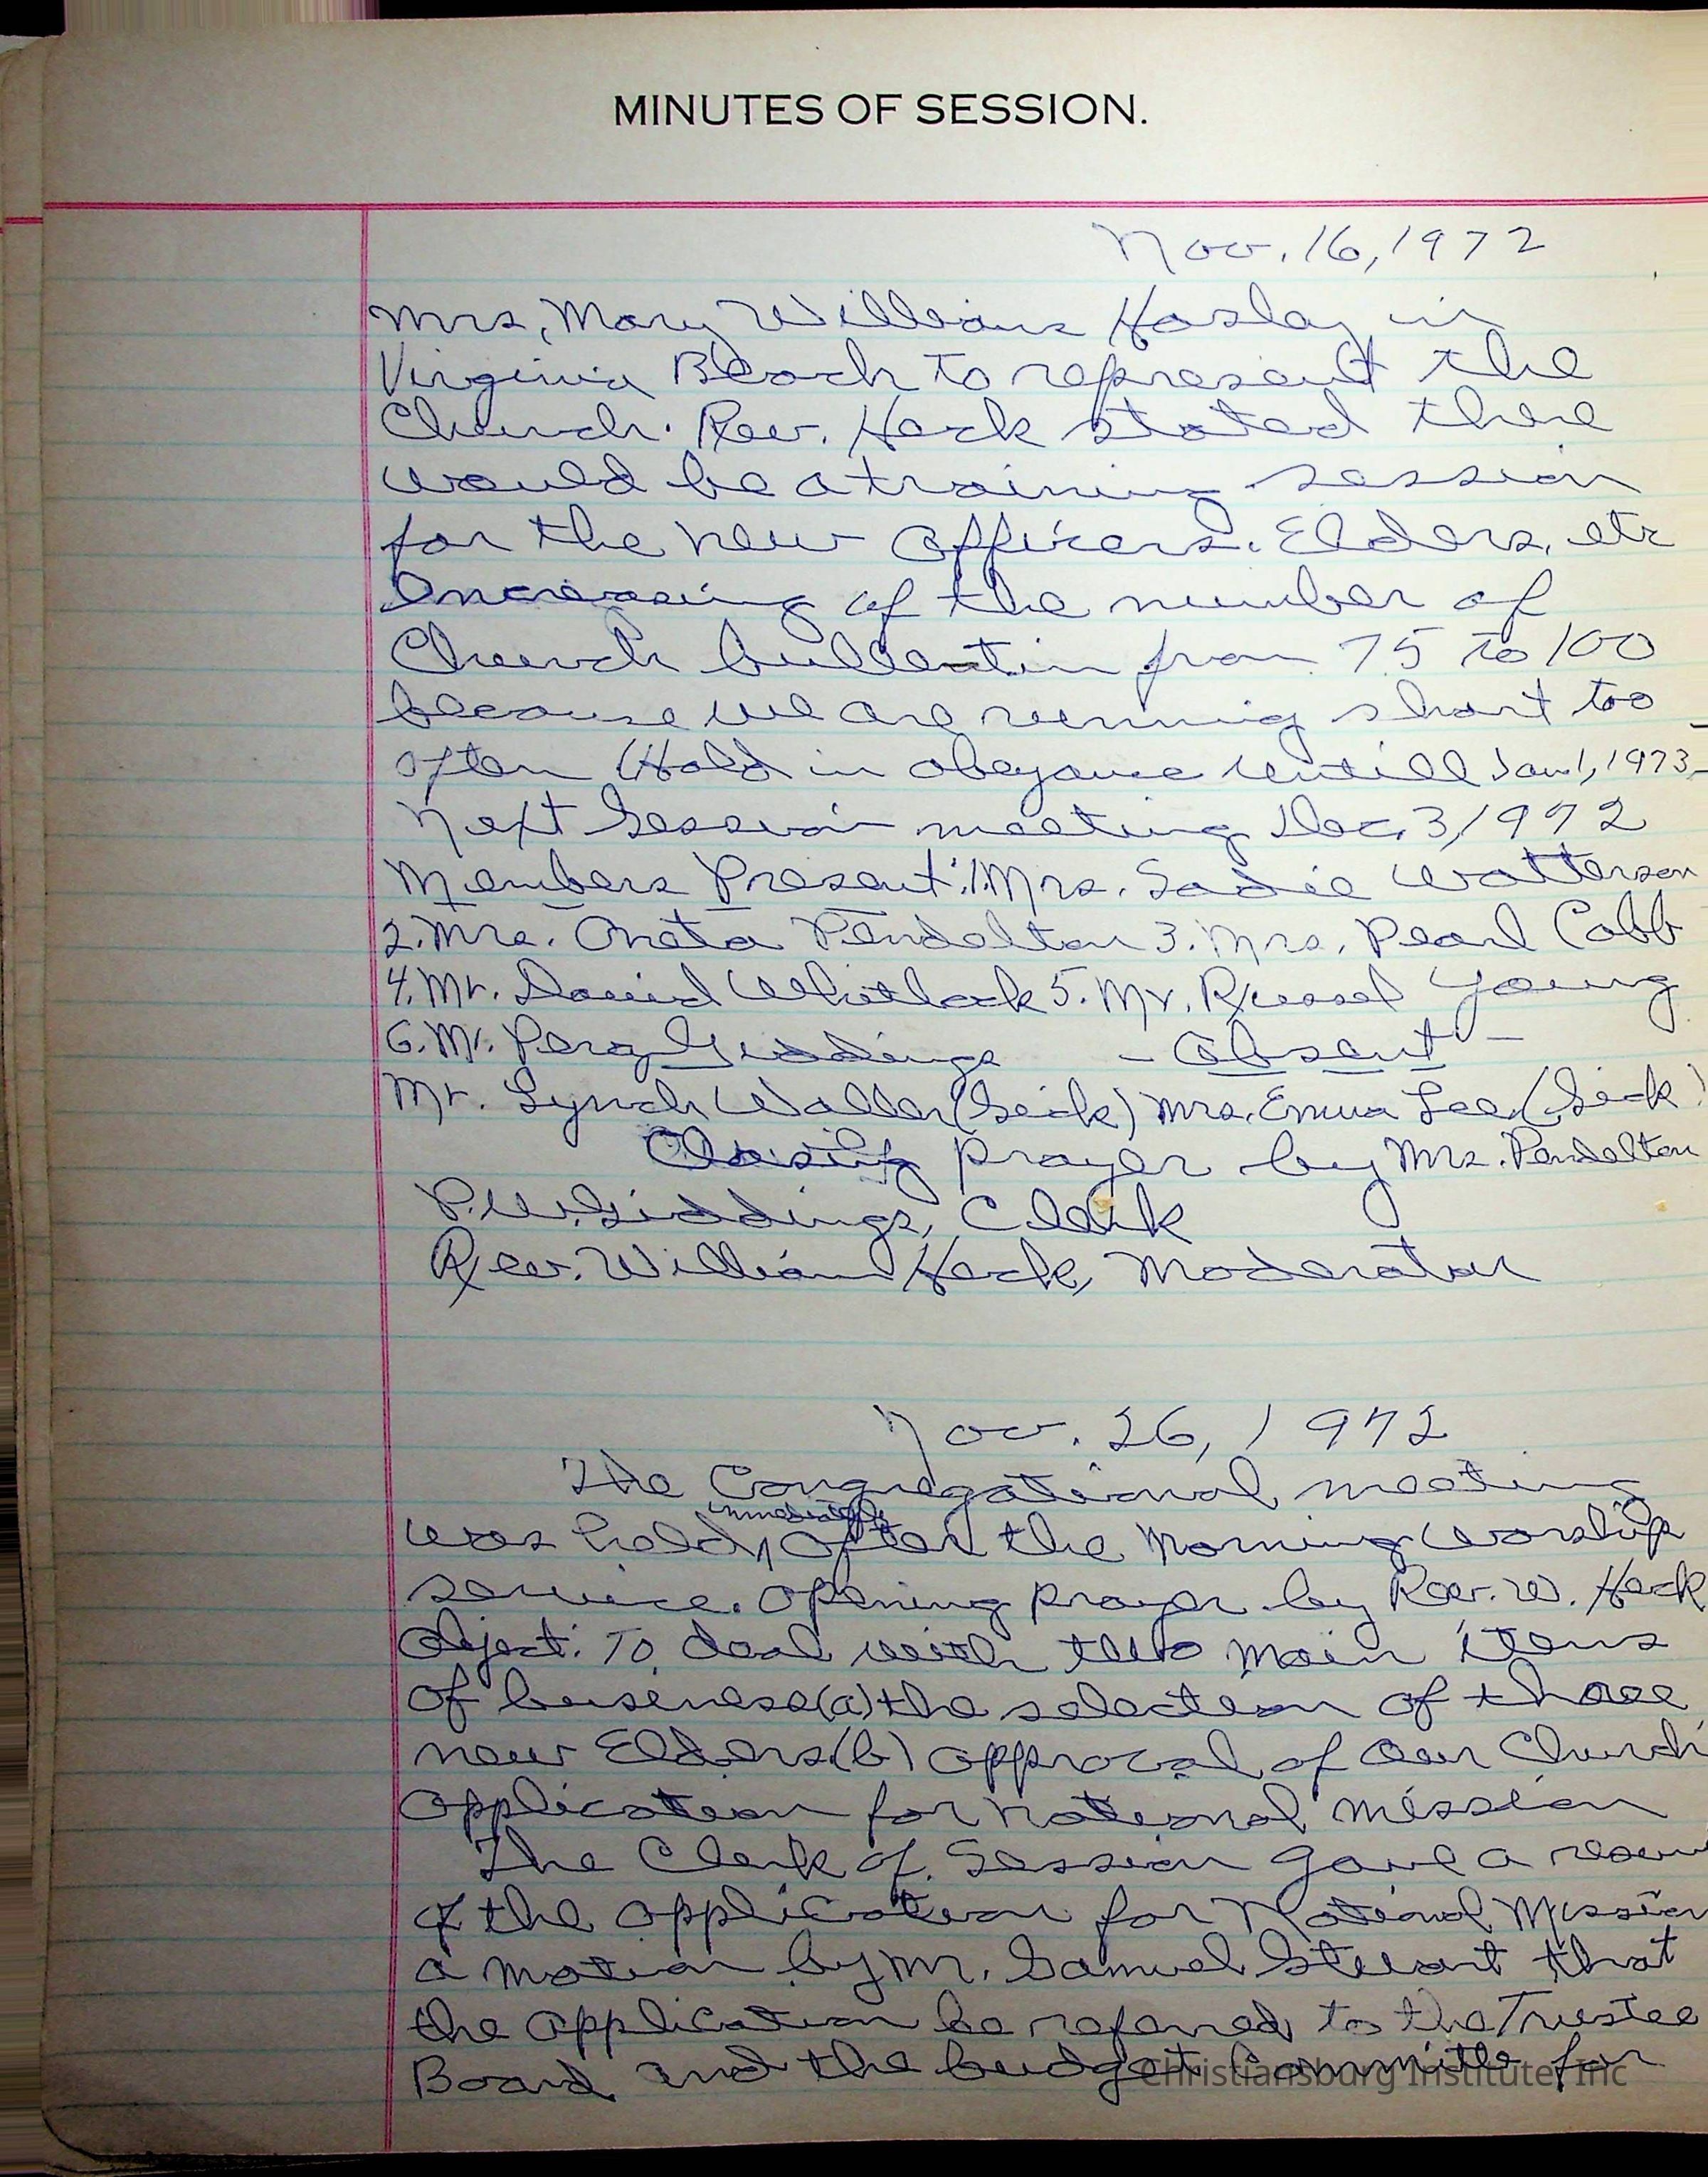 MINUTES OF SESSION.
Nov. 16, 1972
Mrs, Mary Williams Hosley in
Virginia Beach to represent the
Church. Rev. Heck stated there
would be a training session
for the new officers. Elders, etc
Increasing of the number of
Church bulleatin from 75 to 100
because we are running short too
often (Hold in obeyance untill Jan 1, 1973-
Next Session meeting Dec, 3, 1972
Members Present: 1. Mrs. Sadie Watterson
2. Mrs. Oneta Pendelton 3. Mrs. Pearl Cobb
4. Mr. David Whitlock 5. Mr. Russel Young
6. Mr. Percy Giddings - Absent -
Mr. Lynch Waller (Sick) Mrs. Emma Lee (Sick)
Closing prayer by Mrs. Pendelton
P.W. Giddings, Clerk
Rev. William Heck, Moderator
Nov. 26, 1972
The Congregational meeting
was held immediately after the Morning worship
service. Opening prayer by Rev. W. Heck
Object: To deal with two main items
of buseness (a) the selection of three
new Elders (b) approval of our Church
application for national mission
The Clerk of Session gave a
of the application for National Mission
a motion by Mr. Samuel Stewart that
the application be refered to the Trustee
Board and the budget Committe for
Christiansburg Institute, Inc